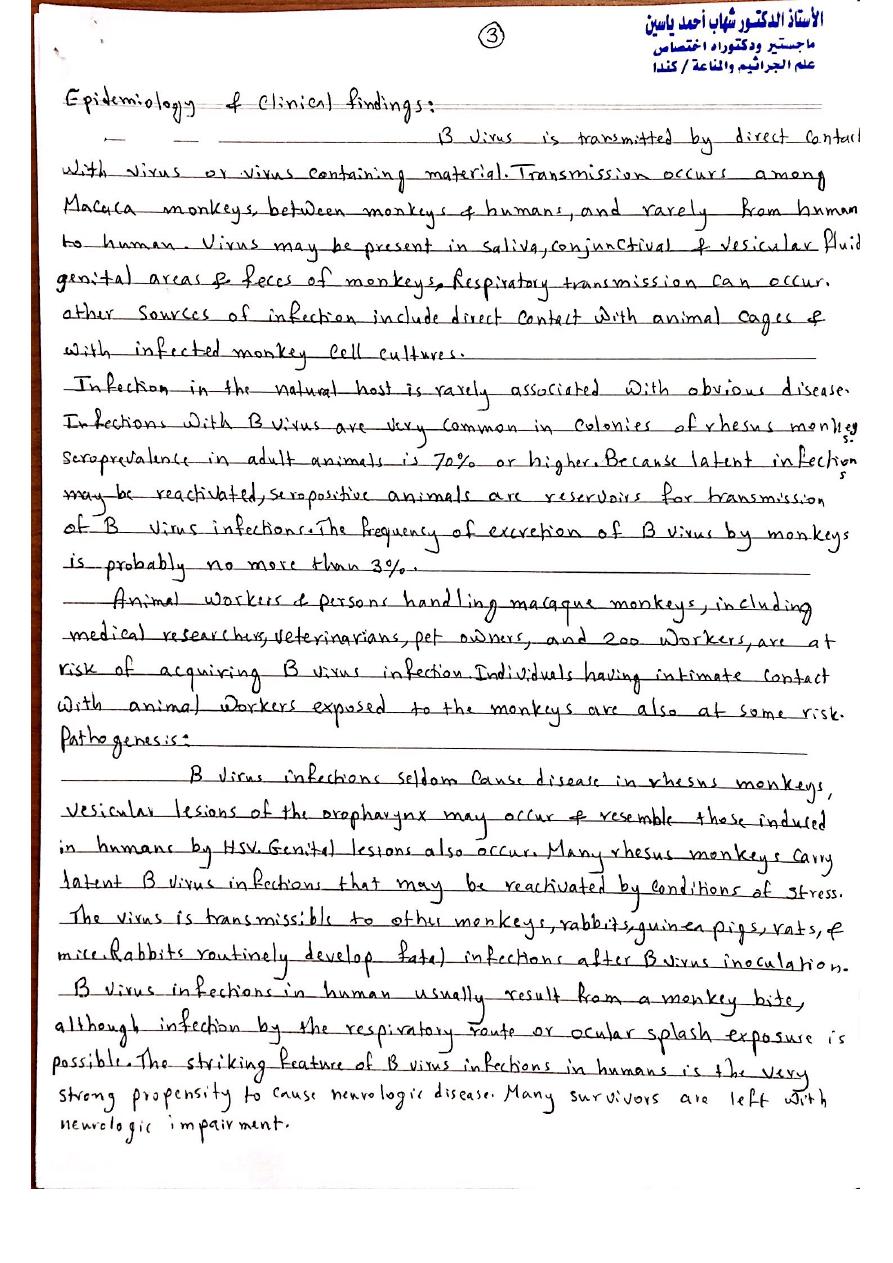 الأستاذ الدكتور شهاب أحمد ياسين
ماجستير ودكتوراه اختصاص
علم الجراثيم والمناعة / كندا
3
Epidemiology & Clinical findings:
B virus is transmitted by direct contact
with virus or virus containing material. Transmission occurs among
Macaca monkeys, between monkeys & humans, and rarely from human
to human. Virus may be present in saliva, conjunctival & vesicular fluid
genital areas & feces of monkeys. Respiratory transmission can occur.
other sources of infection include direct contact with animal cages &
with infected monkey cell cultures.
Infection in the natural host is rarely associated with obvious disease.
Infections with B virus are very common in colonies of rhesus monkeys.
Seroprevalence in adult animals is 70% or higher. Because latent infections
may be reactivated, seropositive animals are reservoirs for transmission
of B virus infections. The frequency of excretion of B virus by monkeys
is probably no more than 3%.
Animal workers & persons handling macaque monkeys, including
medical researchers, veterinarians, pet owners, and zoo workers, are at
risk of acquiring B virus infection. Individuals having intimate contact
with animal workers exposed to the monkeys are also at some risk.
Pathogenesis:
B virus infections seldom cause disease in rhesus monkeys,
vesicular lesions of the oropharynx may occur & resemble those induced
in humans by HSV. Genital lesions also occur. Many rhesus monkeys carry
latent B virus infections that may be reactivated by conditions of stress.
The virus is transmissible to other monkeys, rabbits, guinea pigs, rats, &
mice. Rabbits routinely develop fatal infections after B virus inoculation.
B virus infections in human usually result from a monkey bite,
although infection by the respiratory route or ocular splash exposure is
possible. The striking feature of B virus infections in humans is the very
strong propensity to cause neurologic disease. Many survivors are left with
neurologic impairment.